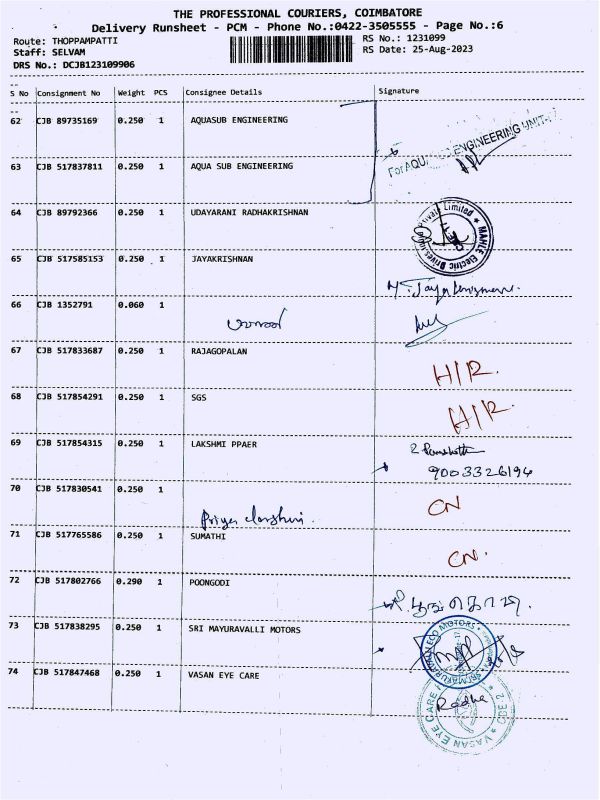 THE PROFESSIONAL COURIERS, COIMBATORE
Delivery Runsheet - PCM - Phone No.:0422-3505555 - Page No.:6
Route: THOPPAMPATTI RS No.: 1231099
Staff: SELVAM RS Date: 25-Aug-2023
DRS No.: DCJB123109906
S No Consignment No Weight PCS Consignee Details Signature
62 CJB 89735169 0.250 1 AQUASUB ENGINEERING
For AQUA ENGINEERING UNIT
63 CJB 517837811 0.250 1 AQUA SUB ENGINEERING
64 CJB 89792366 0.250 1 UDAYARANI RADHAKRISHNAN
MAHLE Electric Drives Private Limited
65 CJB 517585153 0.250 1 JAYAKRISHNAN
66 CJB 1352791 0.060 1
67 CJB 517833687 0.250 1 RAJAGOPALAN H/R.
68 CJB 517854291 0.250 1 SGS H/R.
69 CJB 517854315 0.250 1 LAKSHMI PPAER
9003326194
70 CJB 517830541 0.250 1 Priya darshini. CN
71 CJB 517765586 0.250 1 SUMATHI CN.
72 CJB 517802766 0.290 1 POONGODI
73 CJB 517838295 0.250 1 SRI MAYURAVALLI MOTORS
74 CJB 517847468 0.250 1 VASAN EYE CARE Radha
VASAN EYE CARE CBE 2